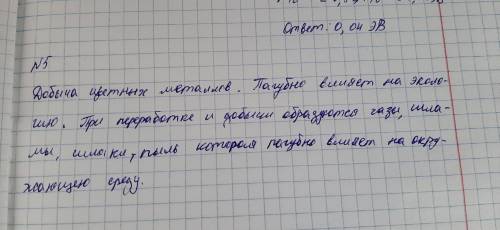 Ответ: 0,04 ЭВ
N5
Добыча цветных металлев. Пагубно влияет на эколо-
гию. При переработке и добыыи образуются газы, шла-
мы, шлаки, пыль которая пагубно влияет на окру-
жающею среду.